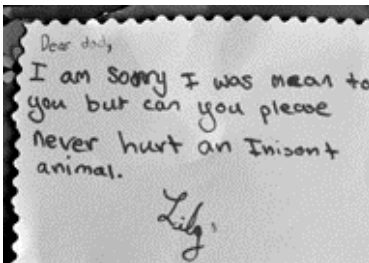 Dear dad,
I am sorry I was mean to
you but can you please
never hurt an Inisont
animal.
Lily